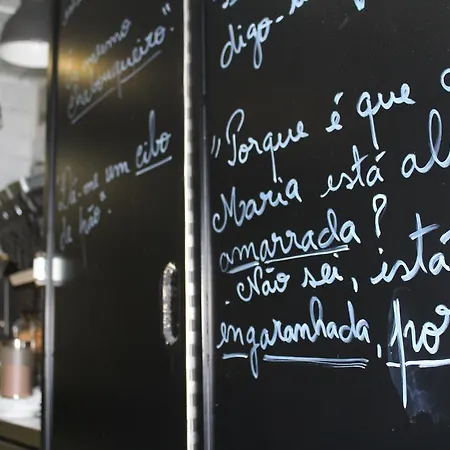 "o mesmo
chevonqueiro."
"Dá-me um cibo
de pão."
digo-
"Porque é que a
Maria está al
amarrada?
Não sei, está
engaranhada, por